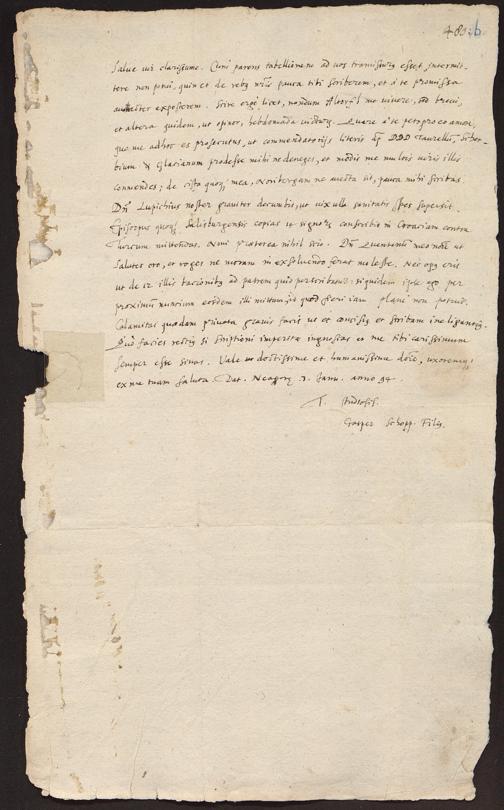 480. b.
Salve vir clarissime. Cum parens tabellionem ad vos transmissurus esset, intermit-
tere non potui, quin et de rebus nris pauca tibi scriberem, et à te promissa
exposcerem. Scire ergo licet, nondum Altorfii me vivere, sed
et altera quidem, ut opinor, hebdomada Quare à te peto pro eo amore,
quo me adhoc es prosecutus, ut commendatitijs literis DDD Taurellum,
et prodesse mihi ne deneges, et modis me multis viris illis
commendes; de cista quoq mea, Noribergam ne ut, pauca mihi scribas.
Dn Lupichius noster graviter decumbit, ut vix ulla sanitatis spes supersit.
Episcopus quoq Salisburgensis copias et signa conscribit in Croatiam contra
Thurcum mittendas. Novi praeterea nihil scio. Dn Quentonem meo noie ut
salutes oro, et roges ne moram in exsolvendo ferat moleste. Nec opus erit
ut de 12 illis taronibus ad patrem quid perscribas: siquidem ipse ego per
proximum nuncium eosdem illi mittam, id quod fieri iam plane non potuit.
Calamitas quaedam privata gravis facit ut et concisius et scribam inelegantius.
Quod facies rectius si scriptioni imperitae ignoscas et me tibi carissimum
semper esse sinas. Vale vir doctissime et humanissime doce, uxoremq
ex me tuam saluta. Dat. 3. Janu. anno 94.
T. studiosiss.
Gasper Schopp. Filius.